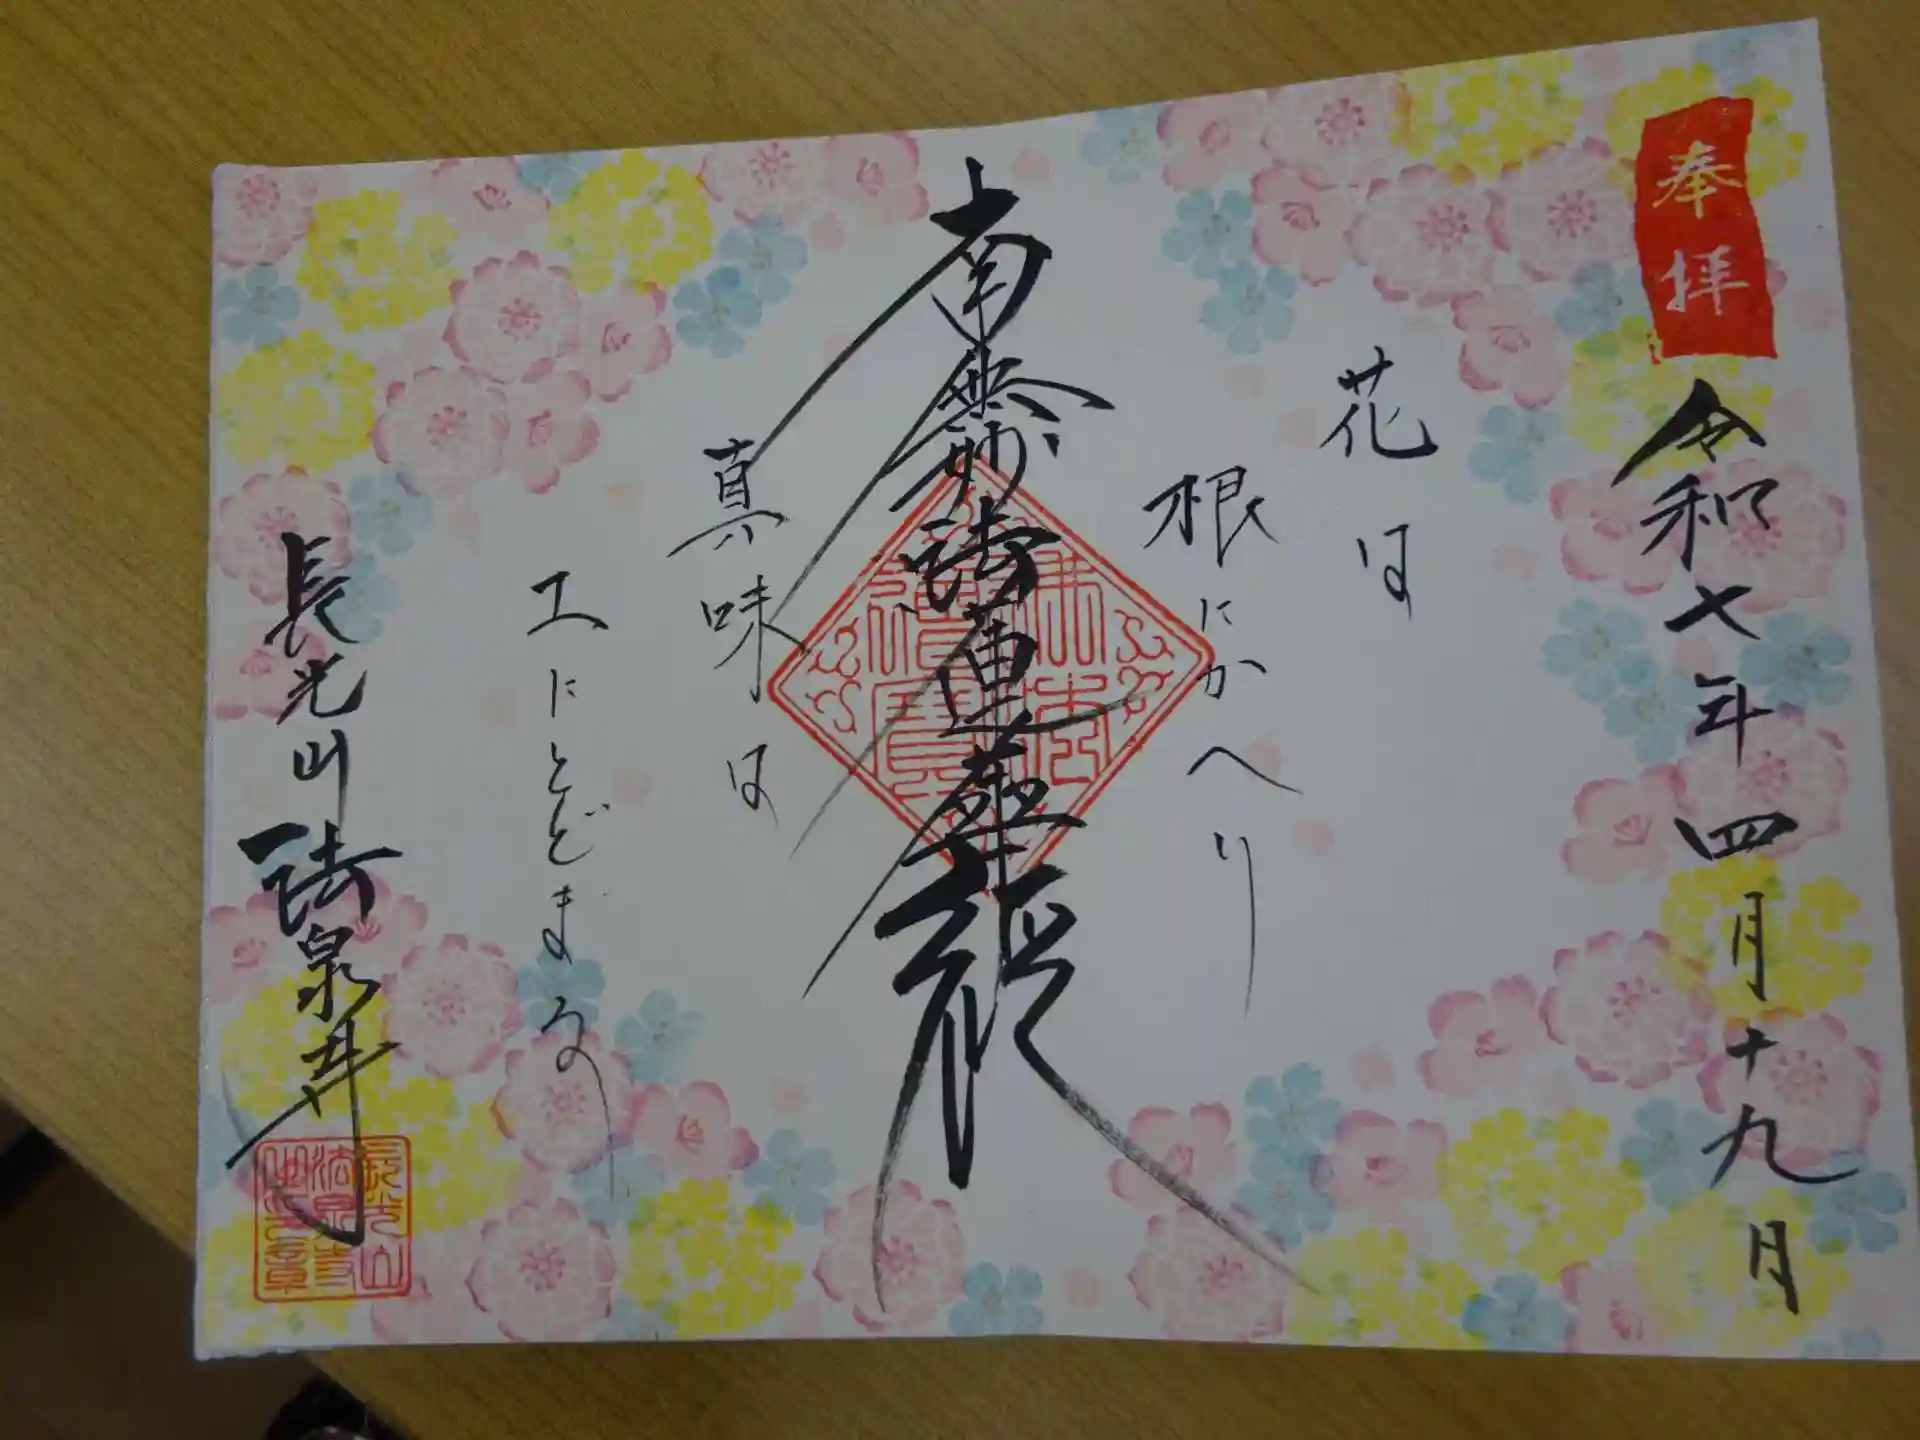 奉拝
令和七年四月十九日
花は
根にかへり
南無妙法蓮華経
真味は
土にとどまる
長光山 法泉寺
長光山
法泉寺